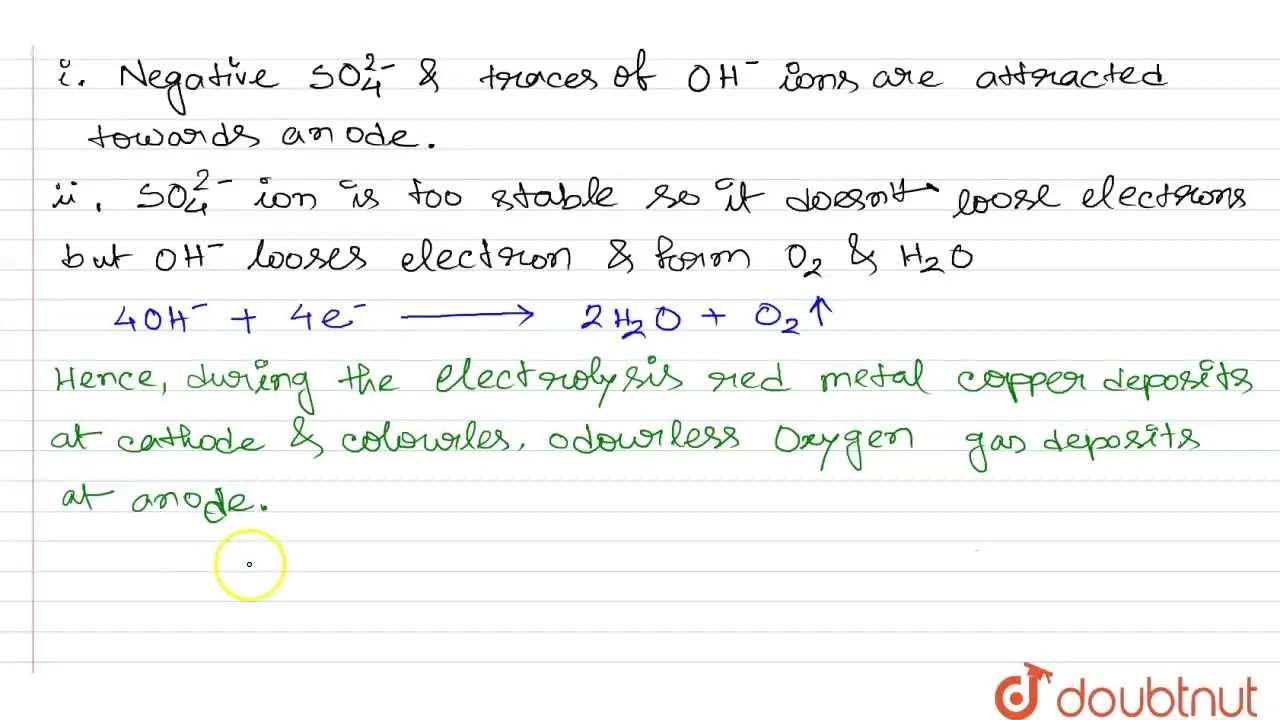 i. Negative SO₄²⁻ & traces of OH⁻ ions are attracted
towards anode.
ii. SO₄²⁻ ion is too stable so it doesn't loose electrons
but OH⁻ looses electron & form O₂ & H₂O
4OH⁻ + 4e⁻ ⟶ 2H₂O + O₂↑
Hence, during the electrolysis red metal copper deposits
at cathode & colourles, odourless Oxygen gas deposits
at anode.
doubtnut